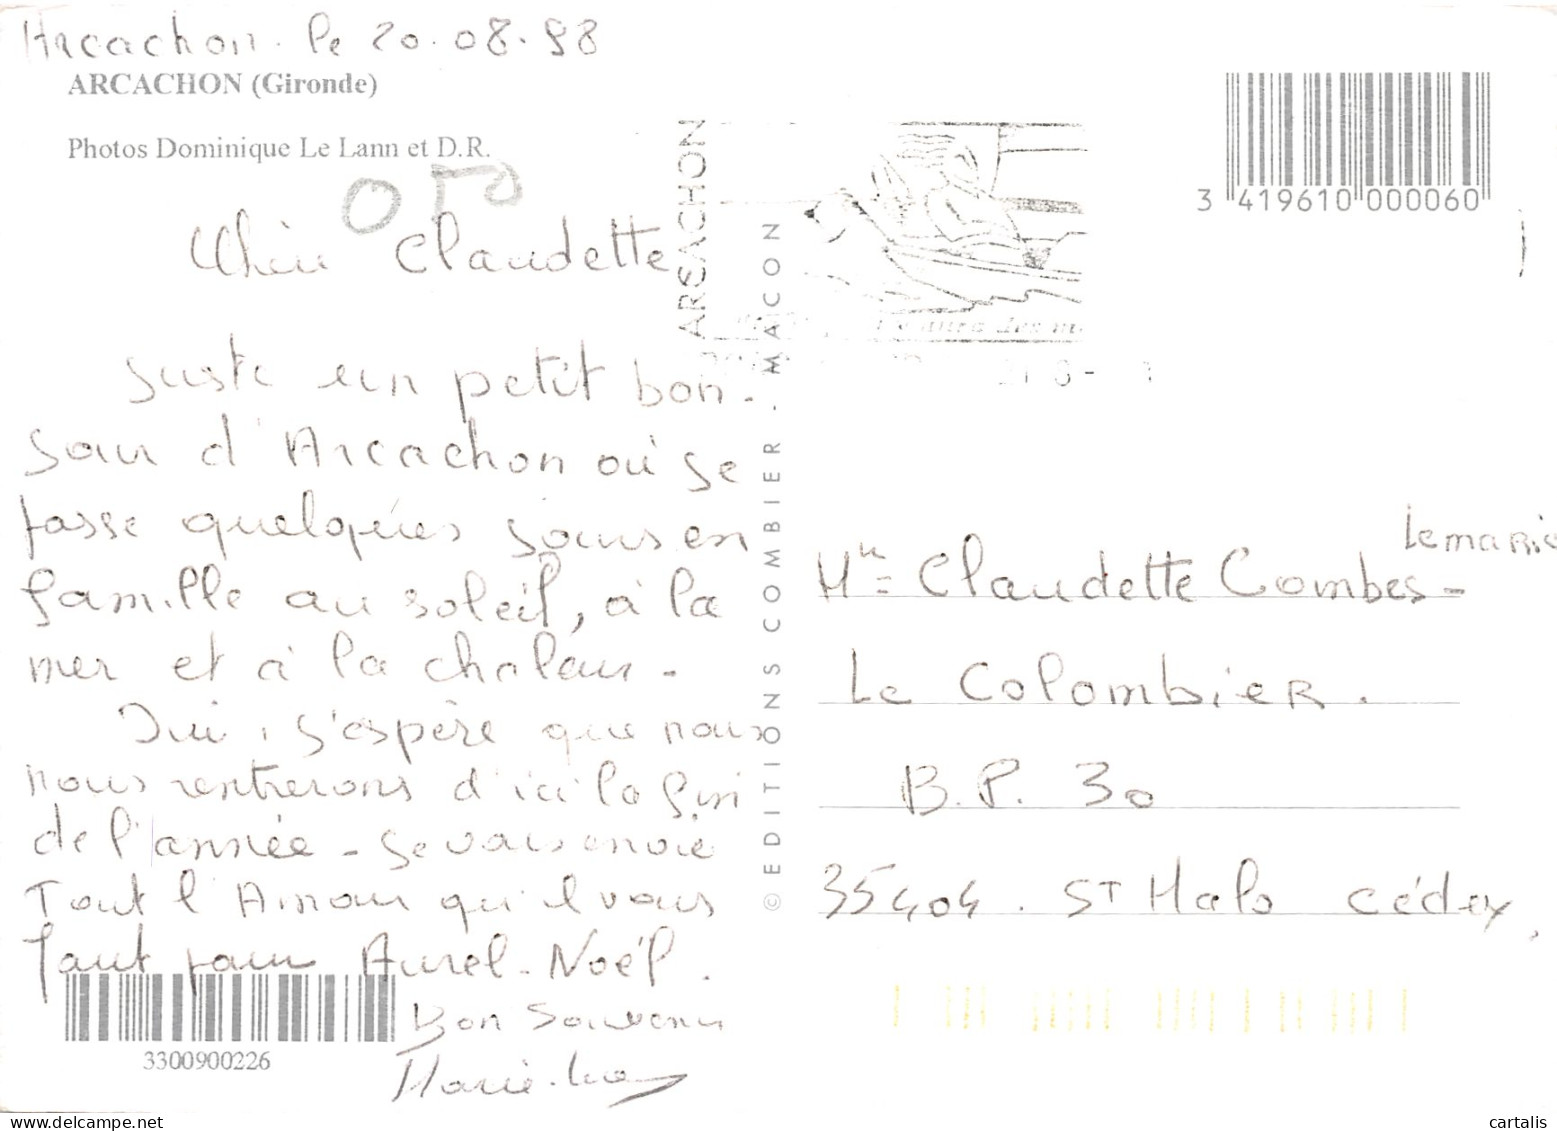 Arcachon. le 20.08.98
ARCACHON (Gironde)
Photos Dominique Le Lann et D.R.
050
Chère Claudette
Juste un petit bon-
jour d'Arcachon où je
passe quelques jours en
famille au soleil, à la
mer et à la chaleur.
j'espère que nous
nous rentrerons d'ici la fin
de l'année - je vous envoie
Tout l'Amour qu'il vous
faut pour Aurel-Noël.
Bon Souvenir
Marie-
3300900226
© EDITIONS COMBIER - MACON
ARCACHON
3 419610 000060
Lemarié
Mme Claudette Combes-
Le Colombier.
B.P. 30
35404. ST Malo Cédex
cartalis
www.delcampe.net